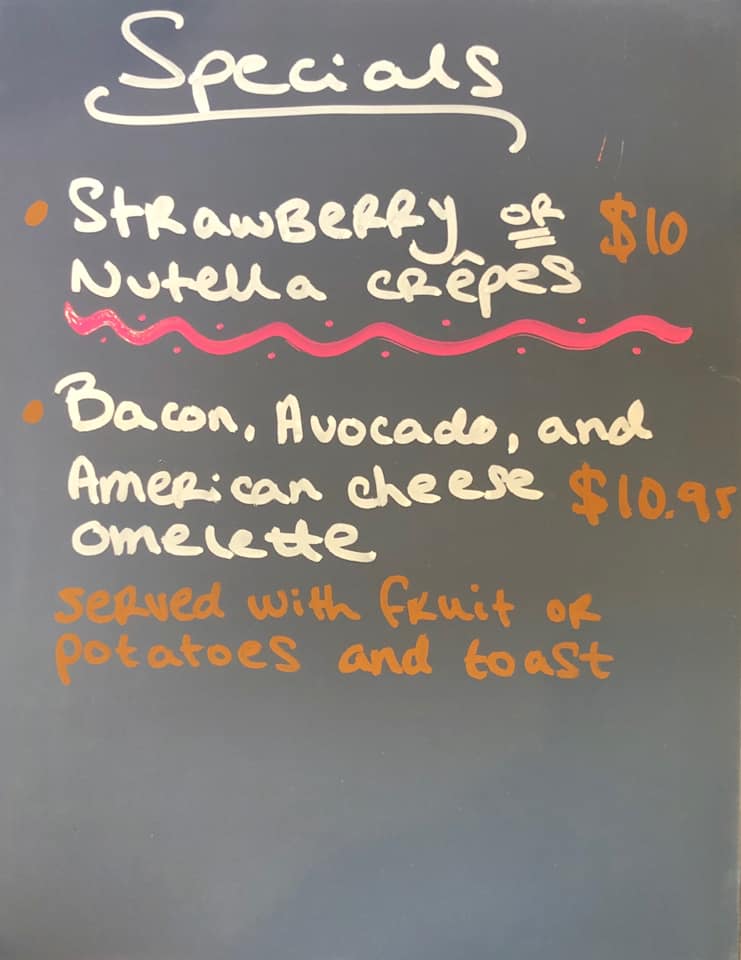 Specials
• Strawberry or $10
Nutella crêpes
• Bacon, Avocado, and
American cheese $10.95
omelette
served with fruit or
potatoes and toast